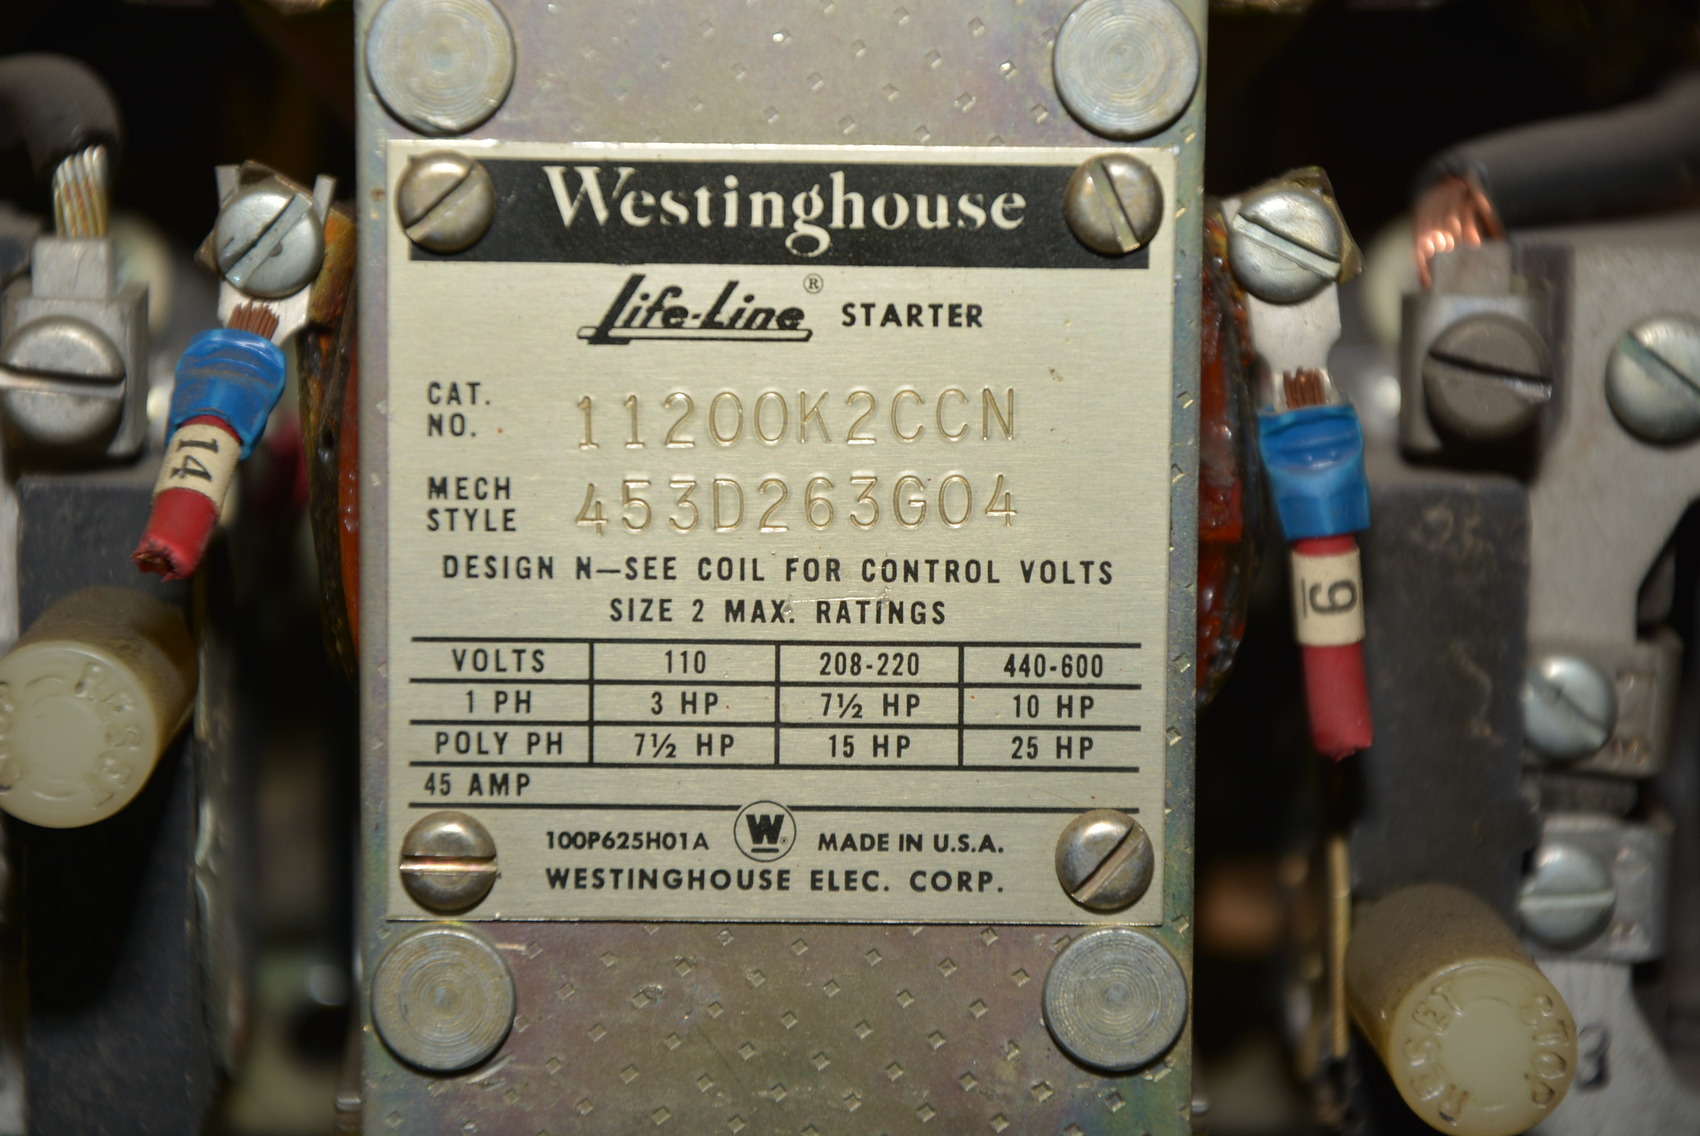 Westinghouse
Life-Line® STARTER
CAT. NO. 11200K2CCN
MECH STYLE 453D263G04
DESIGN N—SEE COIL FOR CONTROL VOLTS
SIZE 2 MAX. RATINGS
VOLTS 110 208-220 440-600
1 PH 3 HP 7½ HP 10 HP
POLY PH 7½ HP 15 HP 25 HP
45 AMP
100P625H01A W MADE IN U.S.A.
WESTINGHOUSE ELEC. CORP.
14
9
RESET
RESET STOP
3